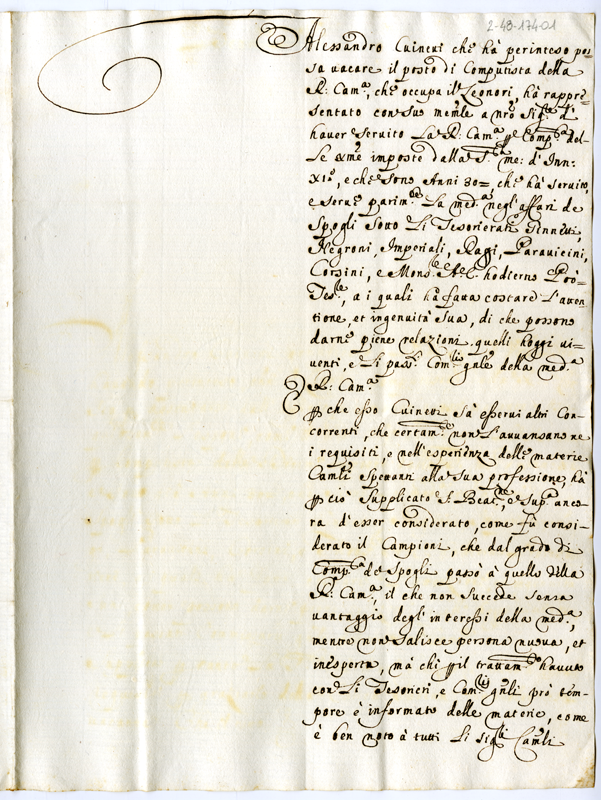 2-43-17401
Alessandro Cuineui che hà perinteso pos=
sa uacare il posto di Computista della
R: Cam:ª, che occupa il Leonori, hà rappre=
sentato con suo mem:le a nrõ Sig:re d'
hauer seruito La R: Cam:ª ꝑ Comp:ª del-
Le imposte dalla S: me: d' Inn:
XI:º, e che sono Anni 30= che hà seruito,
e serue parim:te La med:ª negl'affari de
Spogli sotto Li Tesorierati
Negroni, Imperiali, Ragi, Parauicini,
Corsini, e Mons:re hodierno Prò=
Tes:re, a i quali hà fatto costare l'atten=
tione, et ingenuità sua, di che possono
darne piene relazioni quelli hoggi ui=
uenti, e Li pass:ti Com:rij gnãli della med:ª
R: Cam:ª
E ꝑche esso Cuineui sà esserui altri Con=
correnti, che certam:te non l'auuansano ne
i requisiti, e nell'esperienza delle materie
Cam:li spettanti alla sua professione, hà
ꝑ ciò supplicato S: Beat:ne, e sup:ª anco=
ra d'esser considerato, come fù consi=
derato il Campioni, che dal grado di
Comp:ª de Spogli passò à quello della
R: Cam:ª, il che non succede senza
uantaggio degl'interessi della med:ª,
mentre non salisce persona nuoua, et
inesperta, mà chi ꝑ il trattam:to hauuto
con Li Tesorieri, e Com:rij gnãli prò tem=
pore è informato delle materie, come
è ben noto à tutti Li Sig:ri Cam:li